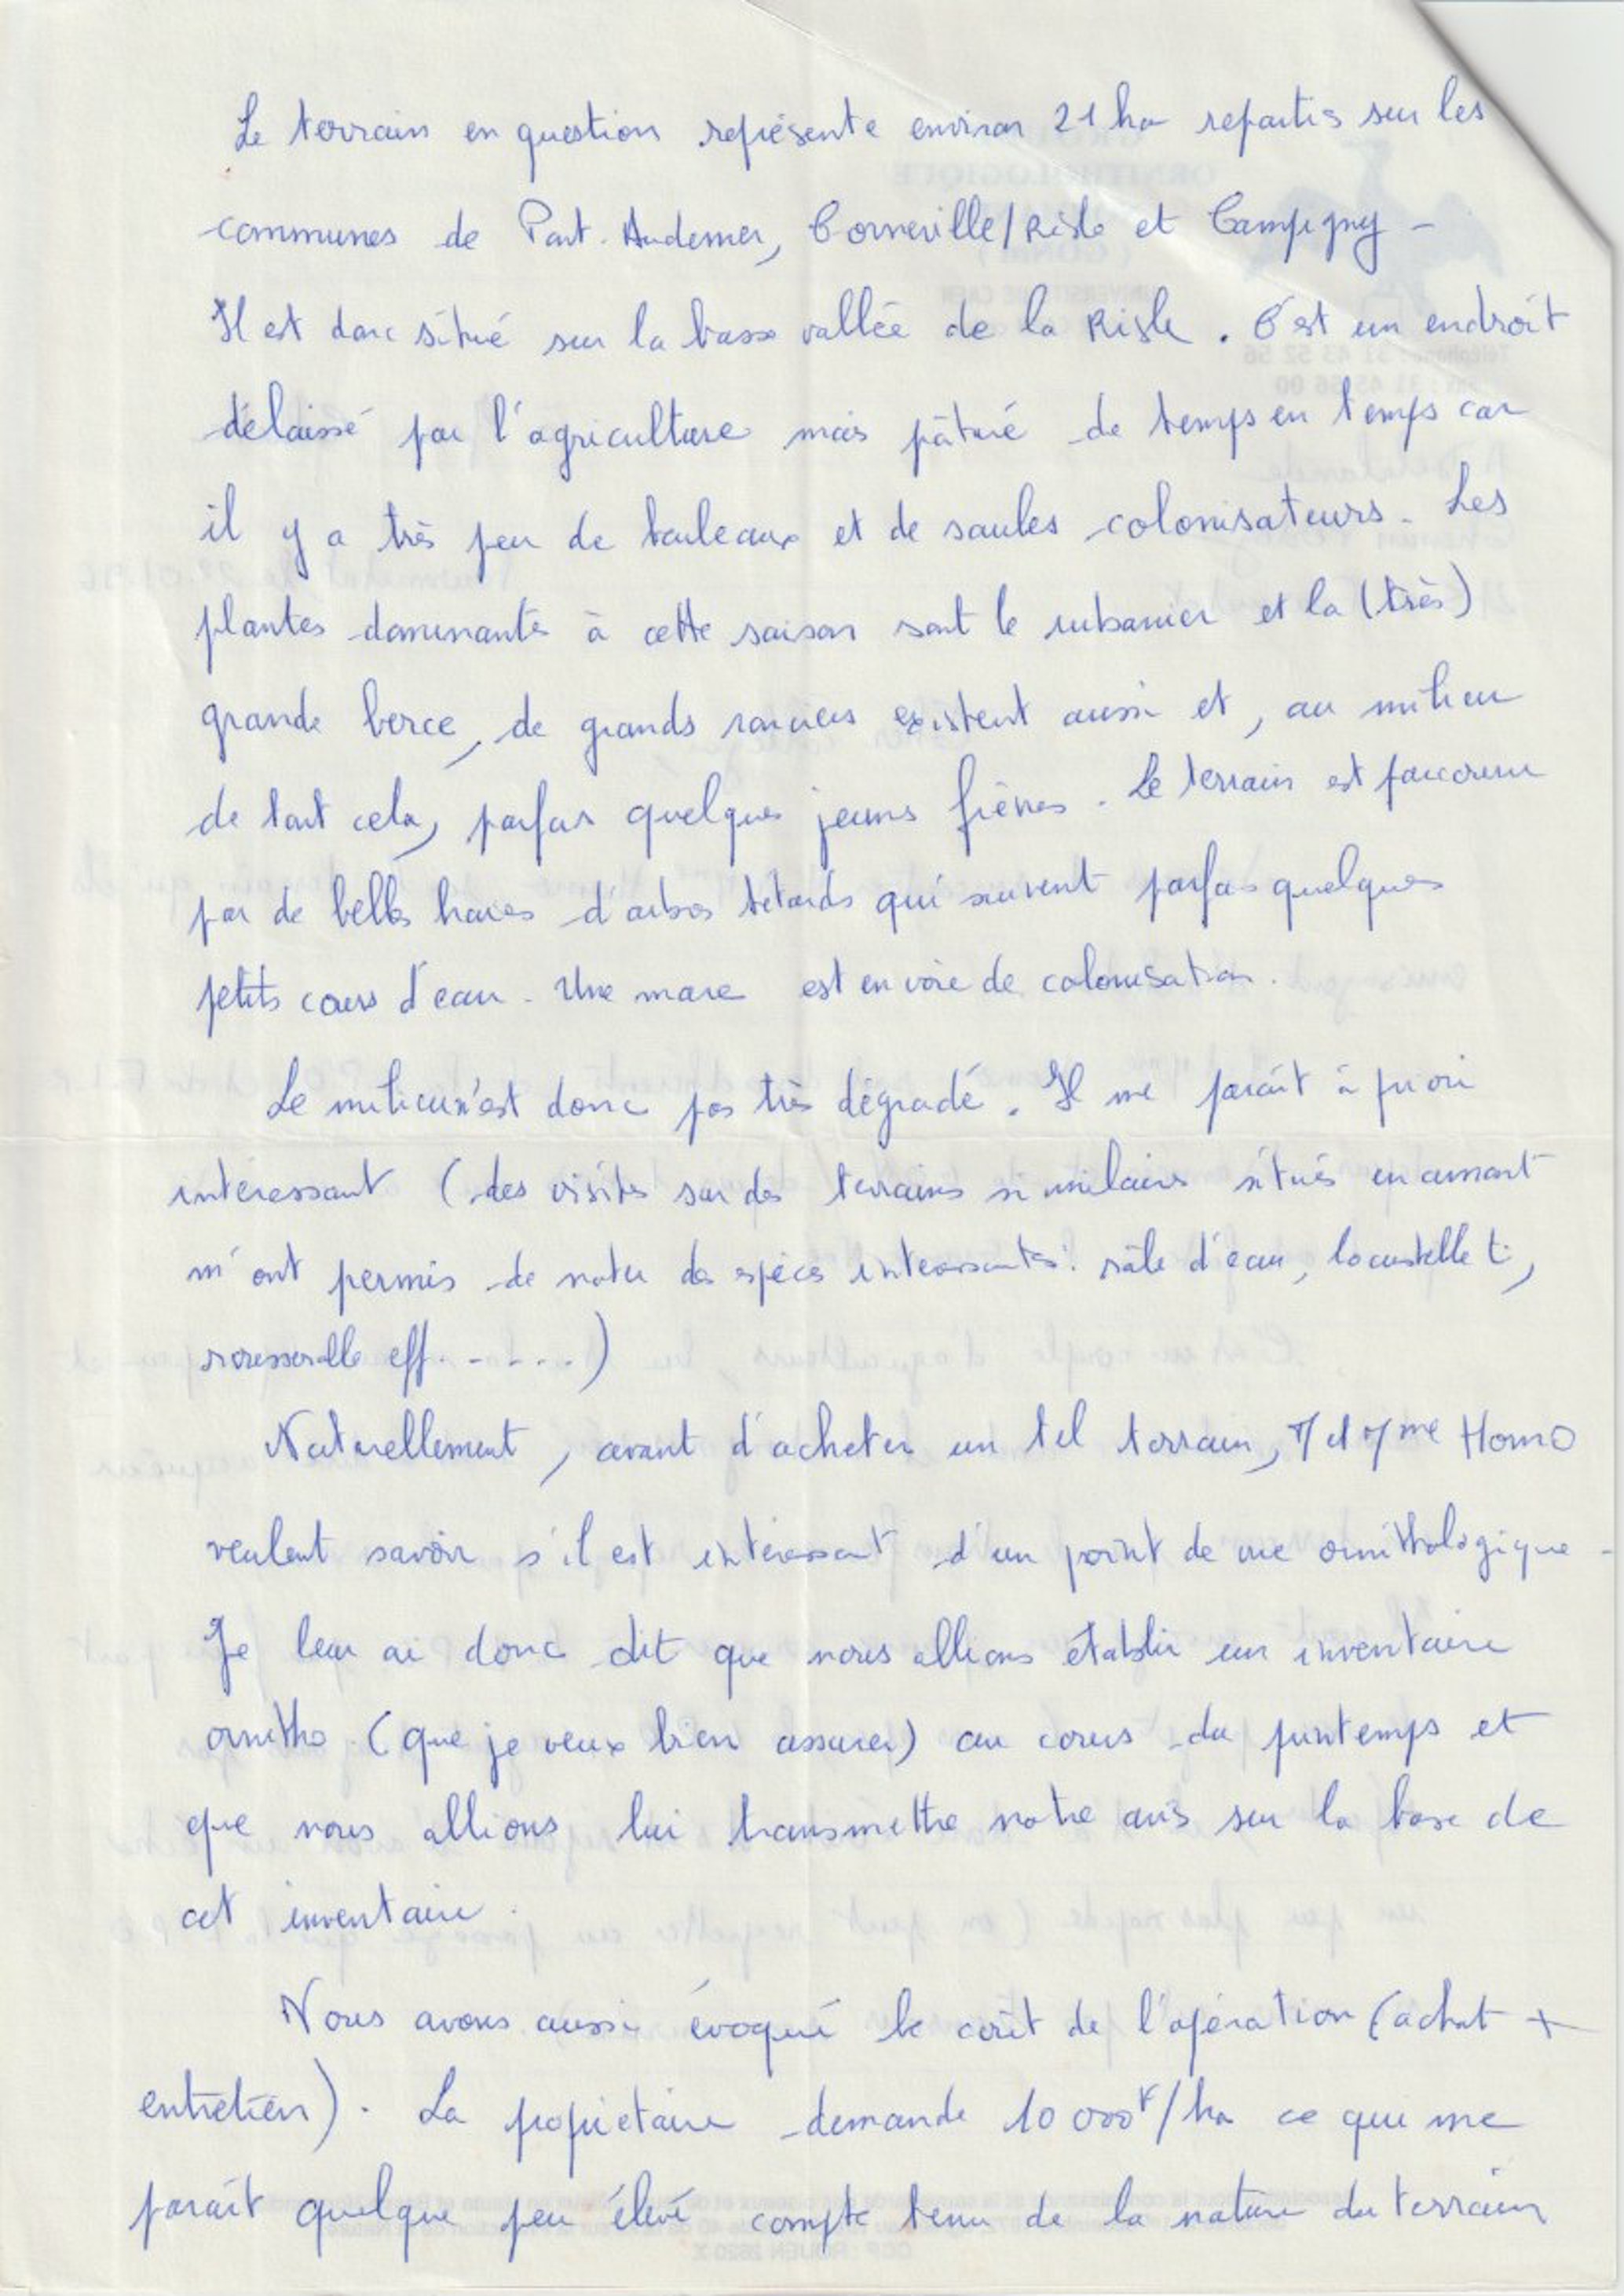 Le terrain en question représente environ 21 ha repartis sur les
communes de Pont. Audemer, Corneville/Risle et Campigny -
Il est donc situé sur la basse vallée de la Risle. C'est un endroit
délaissé par l'agriculture mais pâturé de temps en temps car
il y a très peu de bouleaux et de saules colonisateurs. Les
plantes dominantes à cette saison sont le rubanier et la (très)
grande berce, de grands ronciers existent aussi et, au milieu
de tout cela, parfois quelques jeunes frênes. Le terrain est parcouru
par de belles haies d'arbres têtards qui suivent parfois quelques
petits cours d'eau. Une mare est en voie de colonisation.
Le milieu n'est donc pas très dégradé. Il me paraît à priori
intéressant (des visites sur des terrains similaires situés en amont
m'ont permis de noter des espèces intéressantes: râle d'eau, locustelle t.,
rousserolle eff. - - . . . )
Naturellement, avant d'acheter un tel terrain, M et Mme Homo
veulent savoir s'il est intéressant d'un point de vue ornithologique -
Je leur ai donc dit que nous allions établir un inventaire
ornitho (que je veux bien assurer) au cours du printemps et
que nous allions lui transmettre notre avis sur la base de
cet inventaire.
Nous avons aussi évoqué le coût de l'opération (achat +
entretien). La propriétaire demande 10 000F/ha ce qui me
paraît quelque peu élevé compte tenu de la nature du terrain